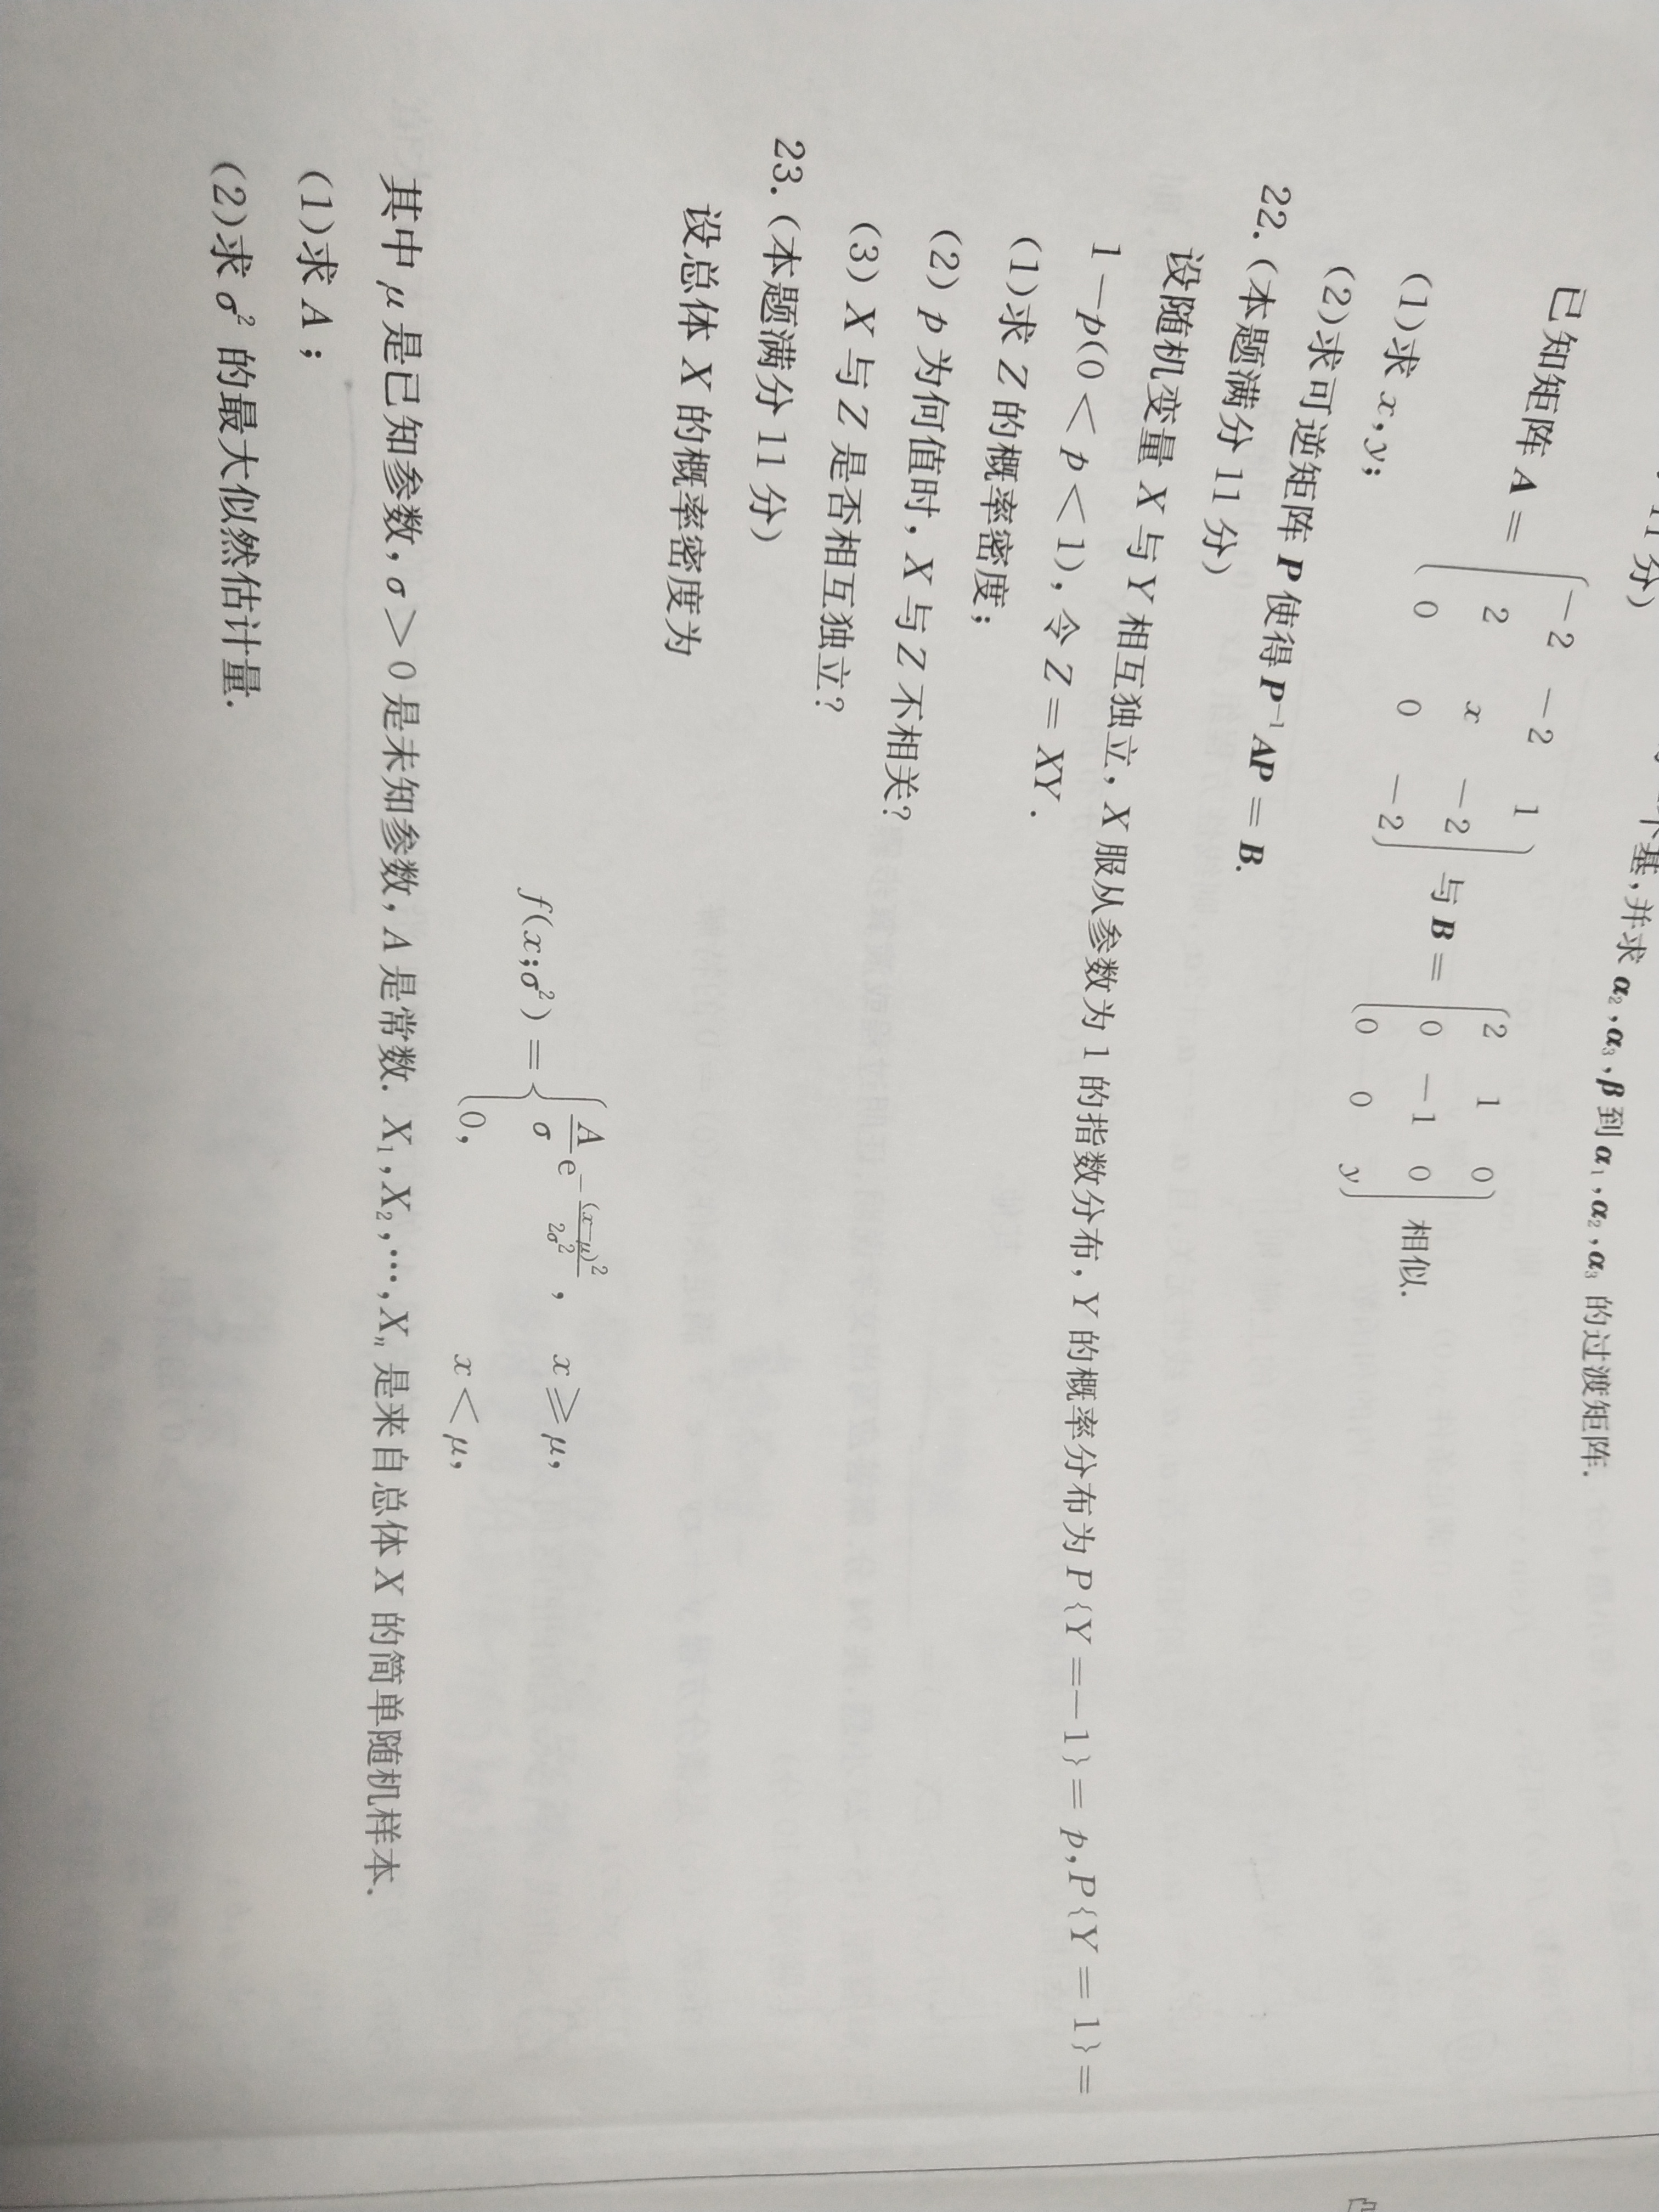 11分)
个基,并求 α₂,α₃,β 到 α₁,α₂,α₃ 的过渡矩阵.
已知矩阵 A = ⎛ −2 −2 1 ⎞ 与 B = ⎛ 2 1 0 ⎞ 相似.
⎜ 2 x −2 ⎟ ⎜ 0 −1 0 ⎟
⎝ 0 0 −2 ⎠ ⎝ 0 0 y ⎠
(1)求 x,y;
(2)求可逆矩阵 P 使得 P⁻¹AP = B.
22.(本题满分 11 分)
设随机变量 X 与 Y 相互独立, X 服从参数为 1 的指数分布, Y 的概率分布为 P{Y =−1}= p,P{Y = 1}=
1−p(0 < p < 1), 令 Z = XY.
(1)求 Z 的概率密度;
(2) p 为何值时, X 与 Z 不相关?
(3) X 与 Z 是否相互独立?
23.(本题满分 11 分)
设总体 X 的概率密度为
f(x;σ²) = { (A/σ)e^(−(x−μ)²/(2σ²)), x ≥ μ,
0, x < μ,
其中 μ 是已知参数, σ > 0 是未知参数, A 是常数. X₁,X₂,…,Xₙ 是来自总体 X 的简单随机样本.
(1)求 A;
(2)求 σ² 的最大似然估计量.